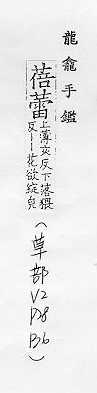 龍龕手鑑
蓓蕾
上薄亥反下落猥
反丨丨花欲綻皃
(草部 V2 B6)